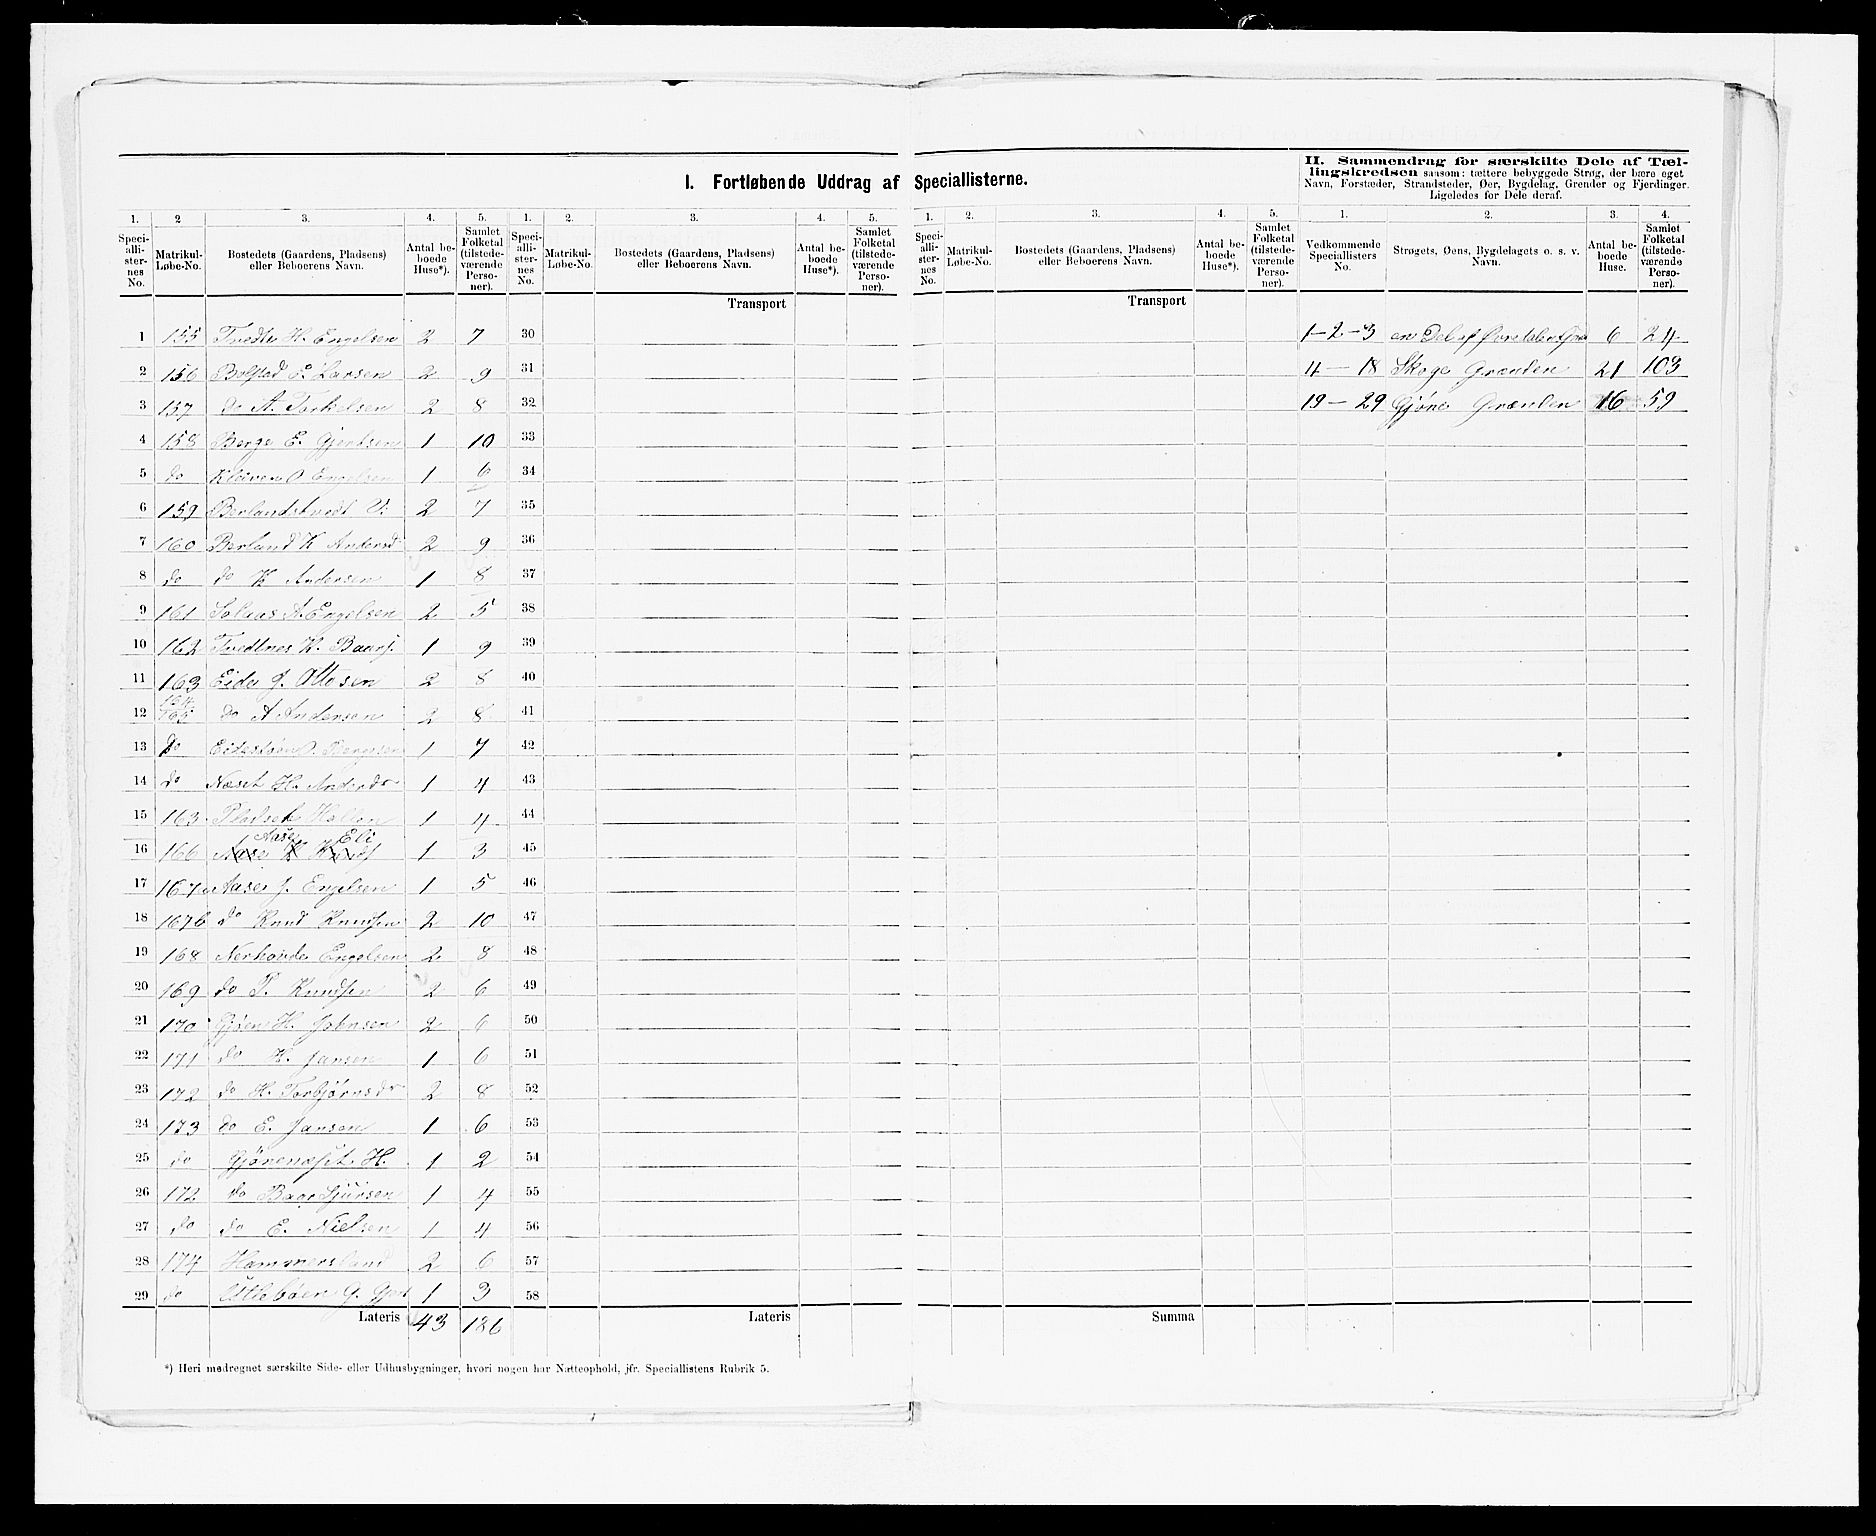 I. Fortløbende Uddrag af Speciallisterne.
II. Sammendrag for særskilte Dele af Tæl-
lingskredsen saasom: tættere bebyggede Strøg, der bære eget
Navn, Forstæder, Strandsteder, Øer, Bygdelag, Grender og Fjerdinger.
Ligeledes for Dele deraf.
1. 2 3. 4. 5. 1. 2. 3. 4. 5. 1. 2. 3. 4. 5. 1. 2. 3. 4.
Speci-alli-ster-nes No. Matrikul-Løbe-No. Bostedets (Gaardens, Pladsens) eller Beboerens Navn. Antal be-boede Huse*). Samlet Folketal (tilstede-værende Perso-ner).
Speci-alli-ster-nes No. Matrikul-Løbe-No. Bostedets (Gaardens, Pladsens) eller Beboerens Navn. Antal be-boede Huse*). Samlet Folketal (tilstede-værende Perso-ner).
Speci-alli-ster-nes No. Matrikul-Løbe-No. Bostedets (Gaardens, Pladsens) eller Beboerens Navn. Antal be-boede Huse*). Samlet Folketal (tilstede-værende Perso-ner).
Vedkommende Speciallisters No. Strøgets, Øens, Bygdelagets o. s. v. Navn. Antal be-boede Huse. Samlet Folketal (tilstede-værende Perso-ner).
Transport Transport
1 155 Tvedte H. Engelsen 2 7 30 1-2-3 en Del af 6 24
2 156 Bolstad E. Larsen 2 9 31 4-18 Skoge Grænden 21 103
3 157 do A. Torkelsen 2 8 32 19-29 Gjøne Grænden 16 59
4 158 Berge E. Gjertsen 1 10 33
5 do Kleiven O Engelsen 1 6 34
6 159 Berlandstvedt 2 7 35
7 160 Berland K Andersd 2 9 36
8 do do K Andersen 1 8 37
9 161 Solaas A. Engelsen 2 5 38
10 162 Tvedtnes K. Baars. 1 9 39
11 163 Eide J. Ottosen 2 8 40
12 164 165 do A Andersen 2 8 41
13 do Eidestøen O. 1 7 42
14 do Næset H. Andersdr 1 4 43
15 163 Pladsen 1 4 44
16 166 Aase Eli 1 3 45
17 167a Aase J. Engelsen 1 5 46
18 167b do Knud Knudsen 2 10 47
19 168 Engelsen 2 8 48
20 169 do P. Knudsen 2 6 49
21 170 Gjøen H. Johnsen 2 6 50
22 171 do H. Jansen 1 6 51
23 172 do H. Torbjørnsdr 2 8 52
24 173 do E. Jansen 1 6 53
25 do Gjønenæset H. 1 2 54
26 172 do Baar Sjursen 1 4 55
27 do do E. Nielsen 1 4 56
28 174 Hammersland 2 6 57
29 do G. 1 3 58
Lateris 43 186 Lateris Summa
*) Heri medregnet særskilte Side- eller Udhusbygninger, hvori nogen har Natteophold, jfr. Speciallistens Rubrik 5.